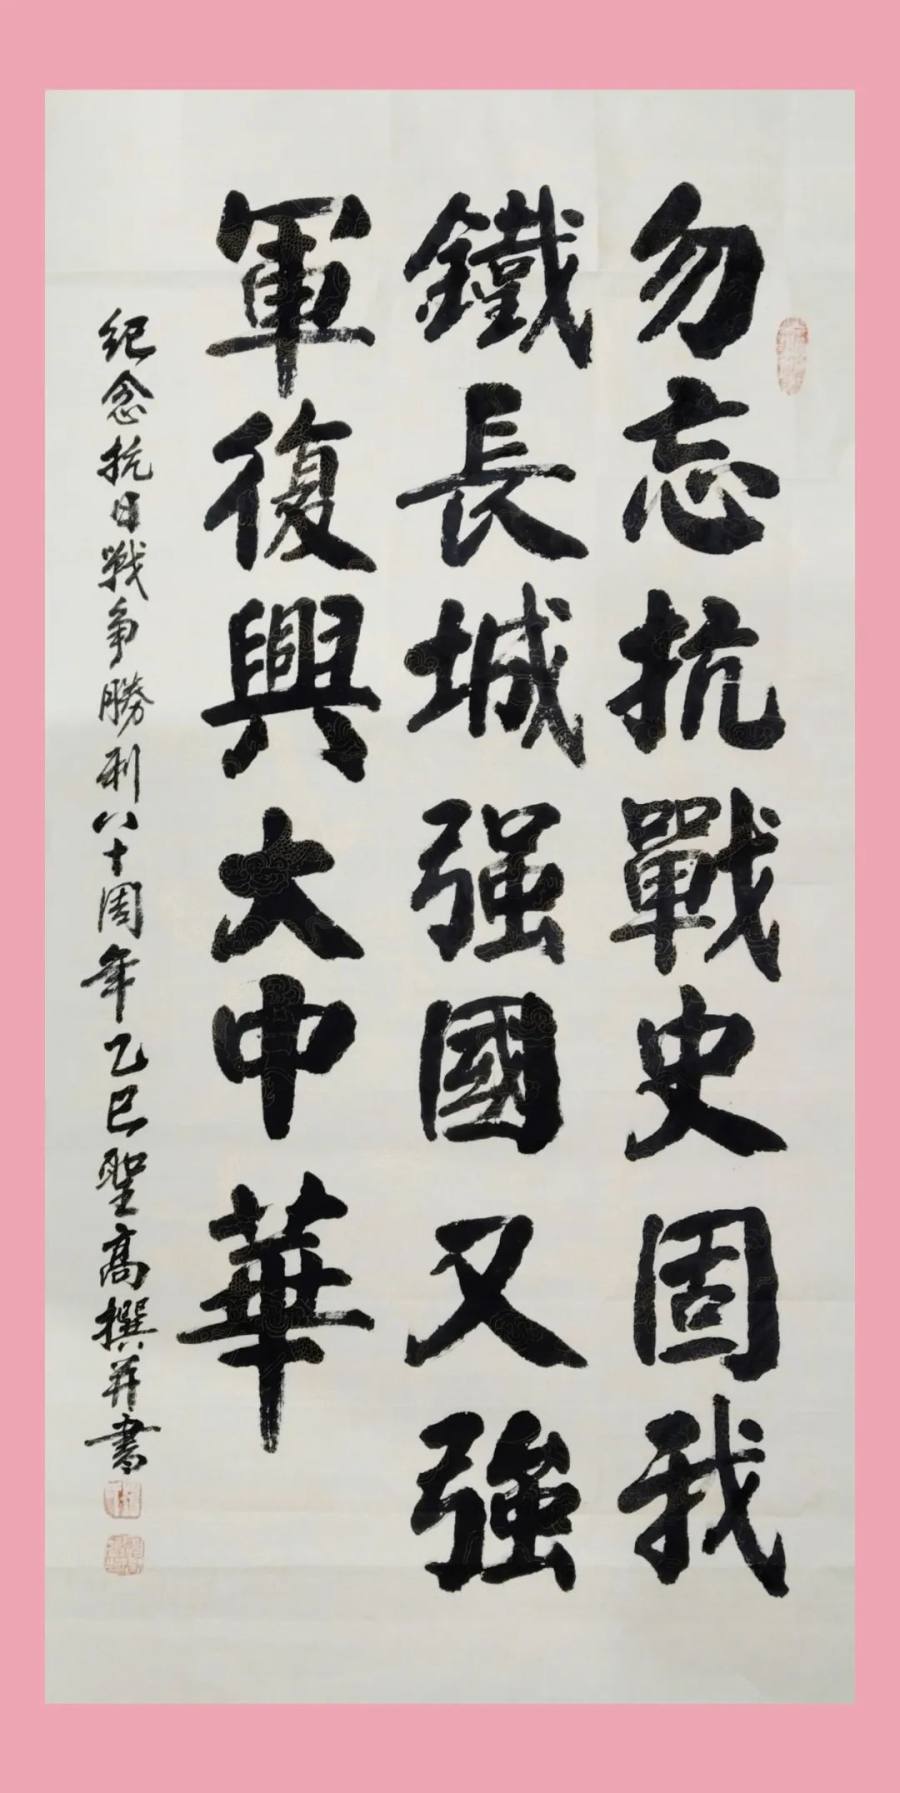 勿忘抗戰史固我
鐵長城强國又強
軍復興大中華
紀念抗日戰争勝利八十周年乙巳聖高撰并書